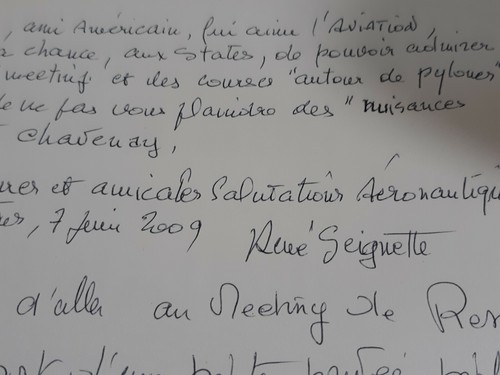 , ami Américain, qui aime l'AVIATION,
chance, aux States, de pouvoir admirer
meeting et des courses "autour de pylones"
de ne pas vous plaindre des "nuisances
CHAVENAY,
et amicales Salutations Aéronautiqu
7 Juin 2009 René Seignette
d'aller au Meeting de